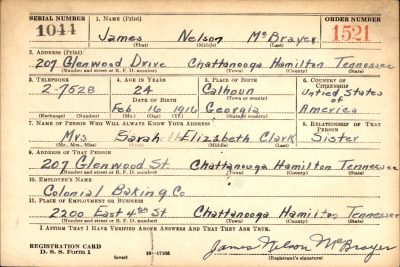 SERIAL NUMBER 1. NAME (Print) ORDER NUMBER
1044 James Nelson McBrayer 1521
(First) (Middle) (Last)
2. ADDRESS (Print)
207 Glenwood Drive Chattanooga Hamilton Tennessee
(Number and street or R. F. D. number) (Town) (County) (State)
3. TELEPHONE 4. AGE IN YEARS 5. PLACE OF BIRTH 6. COUNTRY OF CITIZENSHIP
2-7528 24 Calhoun United States
DATE OF BIRTH (Town or county) of
Feb 16 1916 Georgia America
(Exchange) (Number) (Mo.) (Day) (Yr.) (State or country)
7. NAME OF PERSON WHO WILL ALWAYS KNOW YOUR ADDRESS 8. RELATIONSHIP OF THAT PERSON
Mrs Sarah Elizabeth Clark Sister
(Mr., Mrs., Miss) (First) (Middle) (Last)
9. ADDRESS OF THAT PERSON
207 Glenwood St Chattanooga Hamilton Tennessee
(Number and street or R. F. D. number) (Town) (County) (State)
10. EMPLOYER'S NAME
Colonial Baking Co
11. PLACE OF EMPLOYMENT OR BUSINESS
2200 East 4th St Chattanooga Hamilton, Tennessee
(Number and street or R. F. D. number) (Town) (County) (State)
I AFFIRM THAT I HAVE VERIFIED ABOVE ANSWERS AND THAT THEY ARE TRUE.
REGISTRATION CARD
D. S. S. Form 1 (over) 16—17105 James Nelson McBrayer
(Registrant's signature)